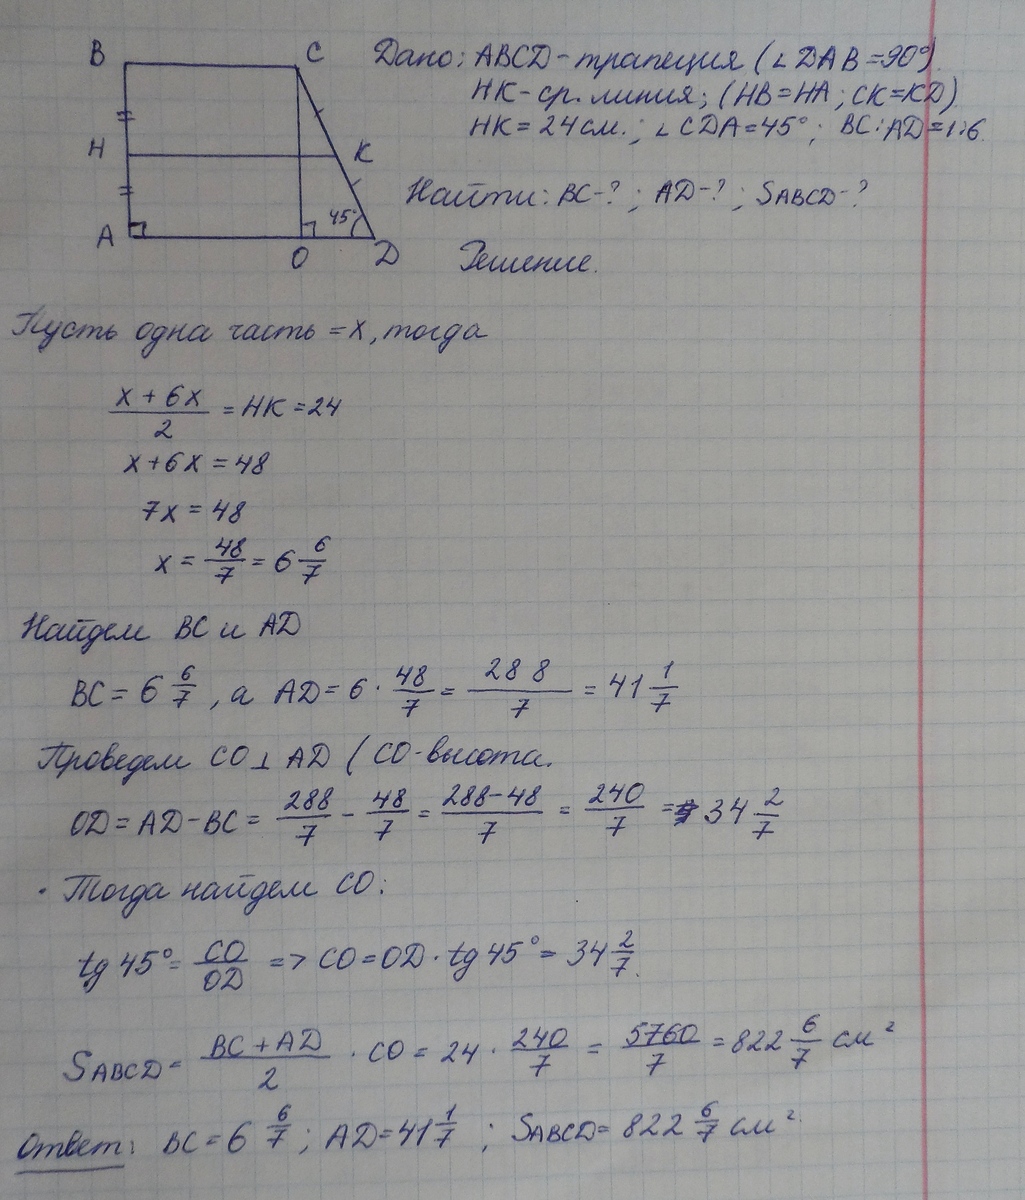 B C Дано: ABCD - трапеция (∠DAB = 90°).
HK - ср. линия; (HB = HA; CK = KD)
H K HK = 24 см.; ∠CDA = 45°; BC : AD = 1:6.
Найти: BC - ?; AD - ?; SABCD - ?
A 45° O D Решение.
Пусть одна часть = x, тогда
(x + 6x)/2 = HK = 24
x + 6x = 48
7x = 48
x = 48/7 = 6 6/7
Найдем BC и AD
BC = 6 6/7, а AD = 6 · 48/7 = 288/7 = 41 1/7
Проведем CO ⊥ AD (CO - высота.
OD = AD - BC = 288/7 - 48/7 = (288-48)/7 = 240/7 = 34 2/7
· Тогда найдем CO:
tg 45° = CO/OD => CO = OD · tg 45° = 34 2/7.
SABCD = (BC + AD)/2 · CO = 24 · 240/7 = 5760/7 = 822 6/7 см²
Ответ: BC = 6 6/7; AD = 41 1/7; SABCD = 822 6/7 см².